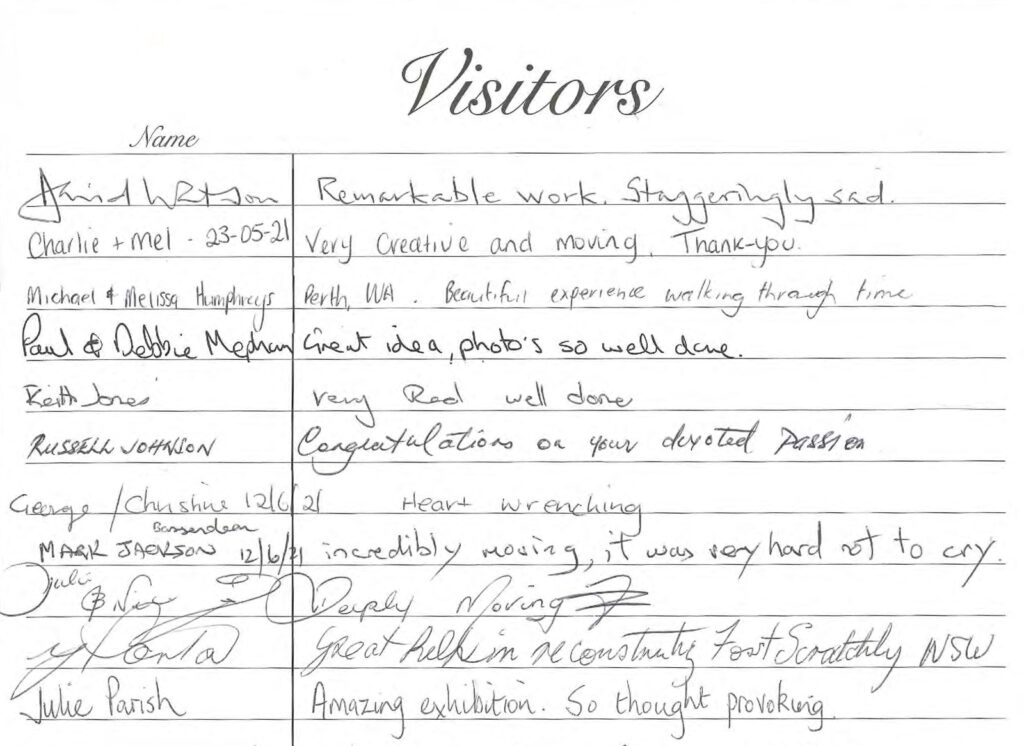 Visitors
Name
David Watson Remarkable work. Staggeringly sad.
Charlie + Mel - 23-05-21 Very Creative and moving. Thank-you.
Michael & Melissa Humphreys Perth, WA. Beautiful experience walking through time
Paul & Debbie Great idea, photo's so well done.
Keith Jones very well done
RUSSELL JOHNSON Congratulations on your devoted Passion
George / Christine 12/6/21 Heart wrenching
Bassendean
MARK JACKSON 12/6/21 incredibly moving, it was very hard not to cry.
Julie Deeply Moving
Great help in Fort Scratchly NSW
Julie Parish Amazing exhibition. So thought provoking.